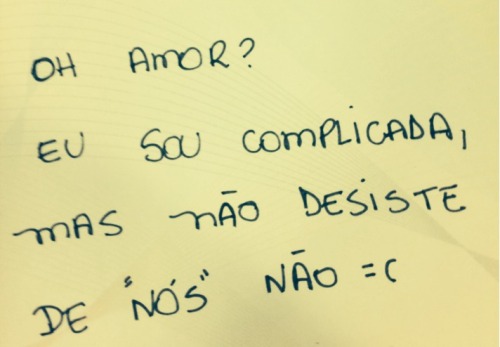 OH AMOR?
EU SOU COMPLICADA,
MAS NÃO DESISTE
DE "NÓS" NÃO =(